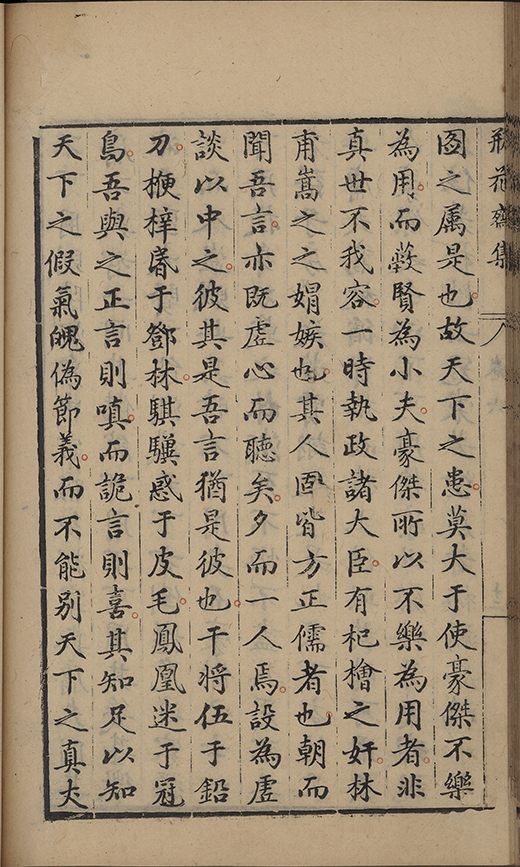 瓶花齋集
圖之属是也故天下之患莫大于使豪傑不樂
為用而蔽賢為小夫豪傑所以不樂為用者非
真世不我容一時執政諸大臣有杞檜之奸林
甫嵩之之媢嫉也其人固皆方正儒者也朝而
聞吾言亦既虚心而聽矣夕而一人焉設為虚
談以中之彼其是吾言猶是彼也干將伍于鉛
刀楩梓辱于鄧林騏驥惑于皮毛鳳凰迷于冠
鳥吾與之正言則嗔而詭言則喜其知足以知
天下之假氣魄偽節義而不能别天下之真大